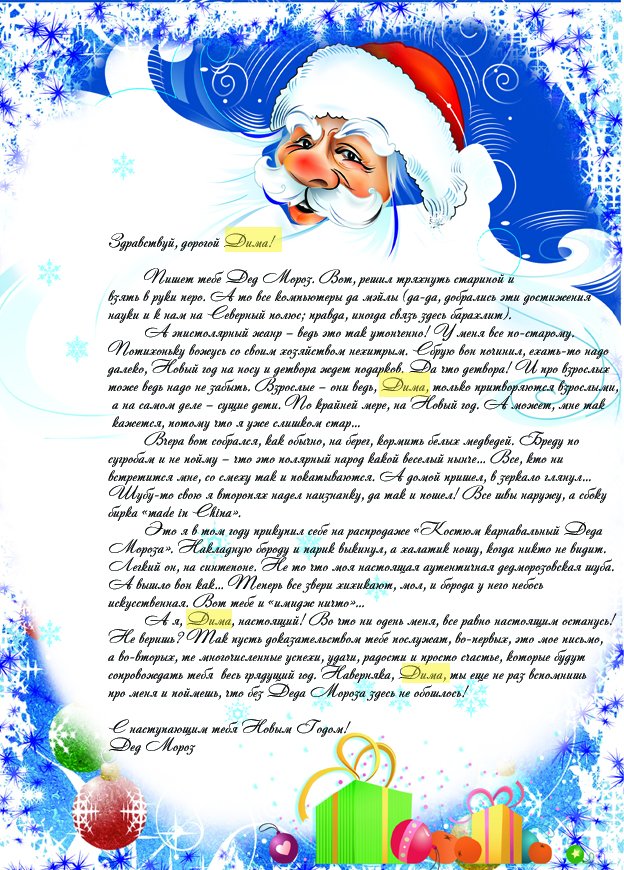 Здравствуй, дорогой Дима!
Пишет тебе Дед Мороз. Вот, решил тряхнуть стариной и
взять в руки перо. А то все компьютеры да мэйлы (да-да, добрались эти достижения
науки и к нам на Северный полюс; правда, иногда связь здесь барахлит).
А эпистолярный жанр – ведь это так утонченно! У меня все по-старому.
Потихоньку вожусь со своим хозяйством нехитрым. Сбрую вон починил, ехать-то надо
далеко, Новый год на носу и детвора ждет подарков. Да что детвора! И про взрослых
тоже ведь надо не забыть. Взрослые – они ведь, Дима, только притворяются взрослыми,
а на самом деле – сущие дети. По крайней мере, на Новый год. А может, мне так
кажется, потому что я уже слишком стар...
Вчера вот собрался, как обычно, на берег, кормить белых медведей. Бреду по
сугробам и не пойму – что это полярный народ какой веселый нынче... Все, кто ни
встретится мне, со смеху так и покатываются. А домой пришел, в зеркало глянул...
Шубу-то свою я впотьнях надел наизнанку, да так и пошел! Все швы наружу, а сбоку
бирка «made in China».
Это я в том году прикупил себе на распродаже «Костюм карнавальный Деда
Мороза». Накладную бороду и парик выкинул, а халатик ношу, когда никто не видит.
Легкий он, на синтепоне. Не то что моя настоящая аутентичная дедморозовская шуба.
А вышло вон как... Теперь все звери хихикают, мол, и борода у него небось
искусственная. Вот тебе и «имидж ничто»...
А я, Дима, настоящий! Во что ни одень меня, все равно настоящим останусь!
Не веришь? Так пусть доказательством тебе послужат, во-первых, это мое письмо,
а во-вторых, те многочисленные успехи, удачи, радости и просто счастье, которые будут
сопровождать тебя весь грядущий год. Наверняка, Дима, ты еще не раз вспомнишь
про меня и поймешь, что без Деда Мороза здесь не обошлось!
С наступающим тебя Новым Годом!
Дед Мороз